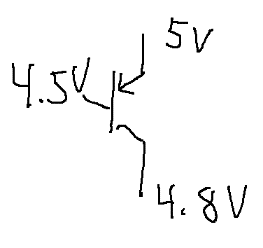 5V
4.5V
4.8V